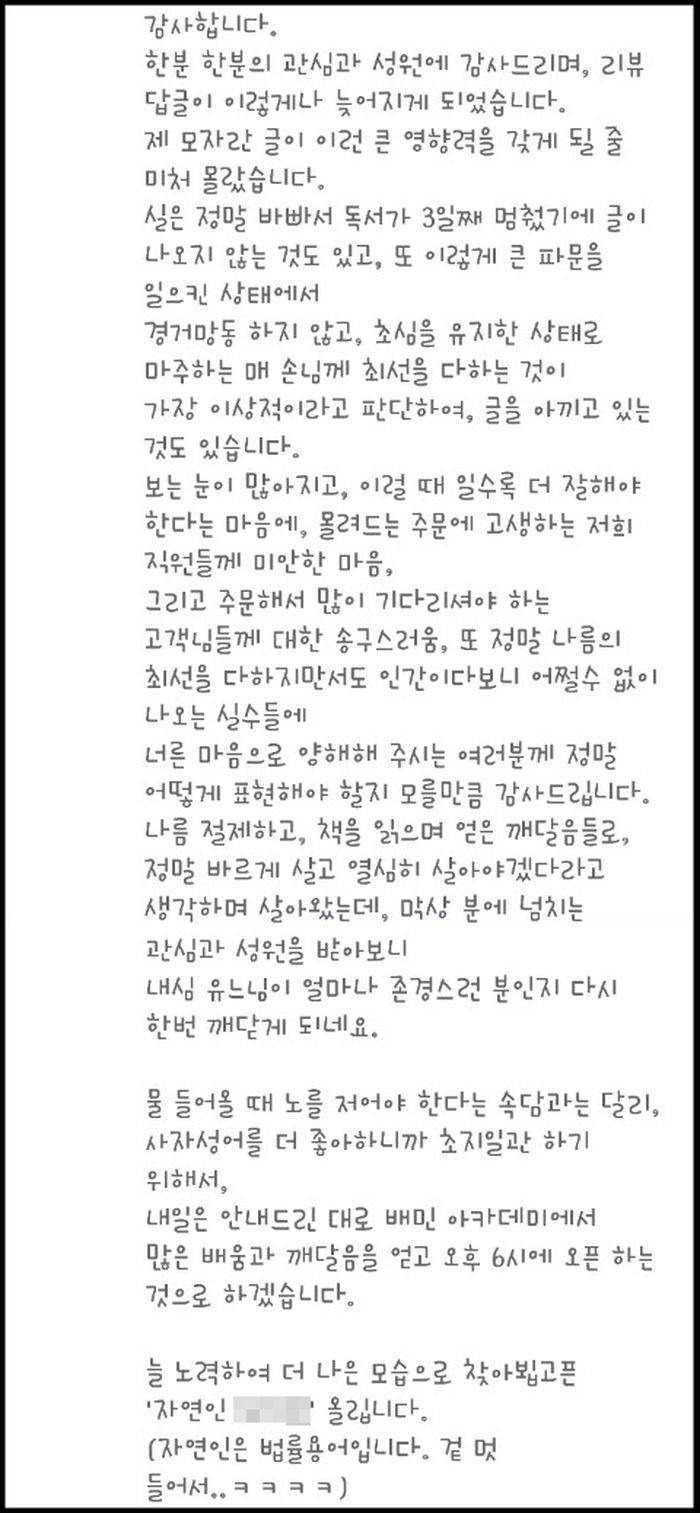 감사합니다.
한분 한분의 관심과 성원에 감사드리며, 리뷰
답글이 이렇게나 늦어지게 되었습니다.
제 모자란 글이 이런 큰 영향력을 갖게 될 줄
미처 몰랐습니다.
실은 정말 바빠서 독서가 3일째 멈췄기에 글이
나오지 않는 것도 있고, 또 이렇게 큰 파문을
일으킨 상태에서
경거망동 하지 않고, 초심을 유지한 상태로
마주하는 매 손님께 최선을 다하는 것이
가장 이상적이라고 판단하여, 글을 아끼고 있는
것도 있습니다.
보는 눈이 많아지고, 이럴 때 일수록 더 잘해야
한다는 마음에, 몰려드는 주문에 고생하는 저희
직원들께 미안한 마음,
그리고 주문해서 많이 기다리셔야 하는
고객님들께 대한 송구스러움, 또 정말 나름의
최선을 다하지만서도 인간이다보니 어쩔수 없이
나오는 실수들에
너른 마음으로 양해해 주시는 여러분께 정말
어떻게 표현해야 할지 모를만큼 감사드립니다.
나름 절제하고, 책을 읽으며 얻은 깨달음들로,
정말 바르게 살고 열심히 살아야겠다라고
생각하며 살아왔는데, 막상 분에 넘치는
관심과 성원을 받아보니
내심 유느님이 얼마나 존경스런 분인지 다시
한번 깨닫게 되네요.
물 들어올 때 노를 저어야 한다는 속담과는 달리,
사자성어를 더 좋아하니까 초지일관 하기
위해서,
내일은 안내드린 대로 배민 아카데미에서
많은 배움과 깨달음을 얻고 오후 6시에 오픈 하는
것으로 하겠습니다.
늘 노력하여 더 나은 모습으로 찾아뵙고픈
'자연인 ' 올립니다.
(자연인은 법률용어입니다. 겉 멋
들어서..ㅋㅋㅋㅋ)